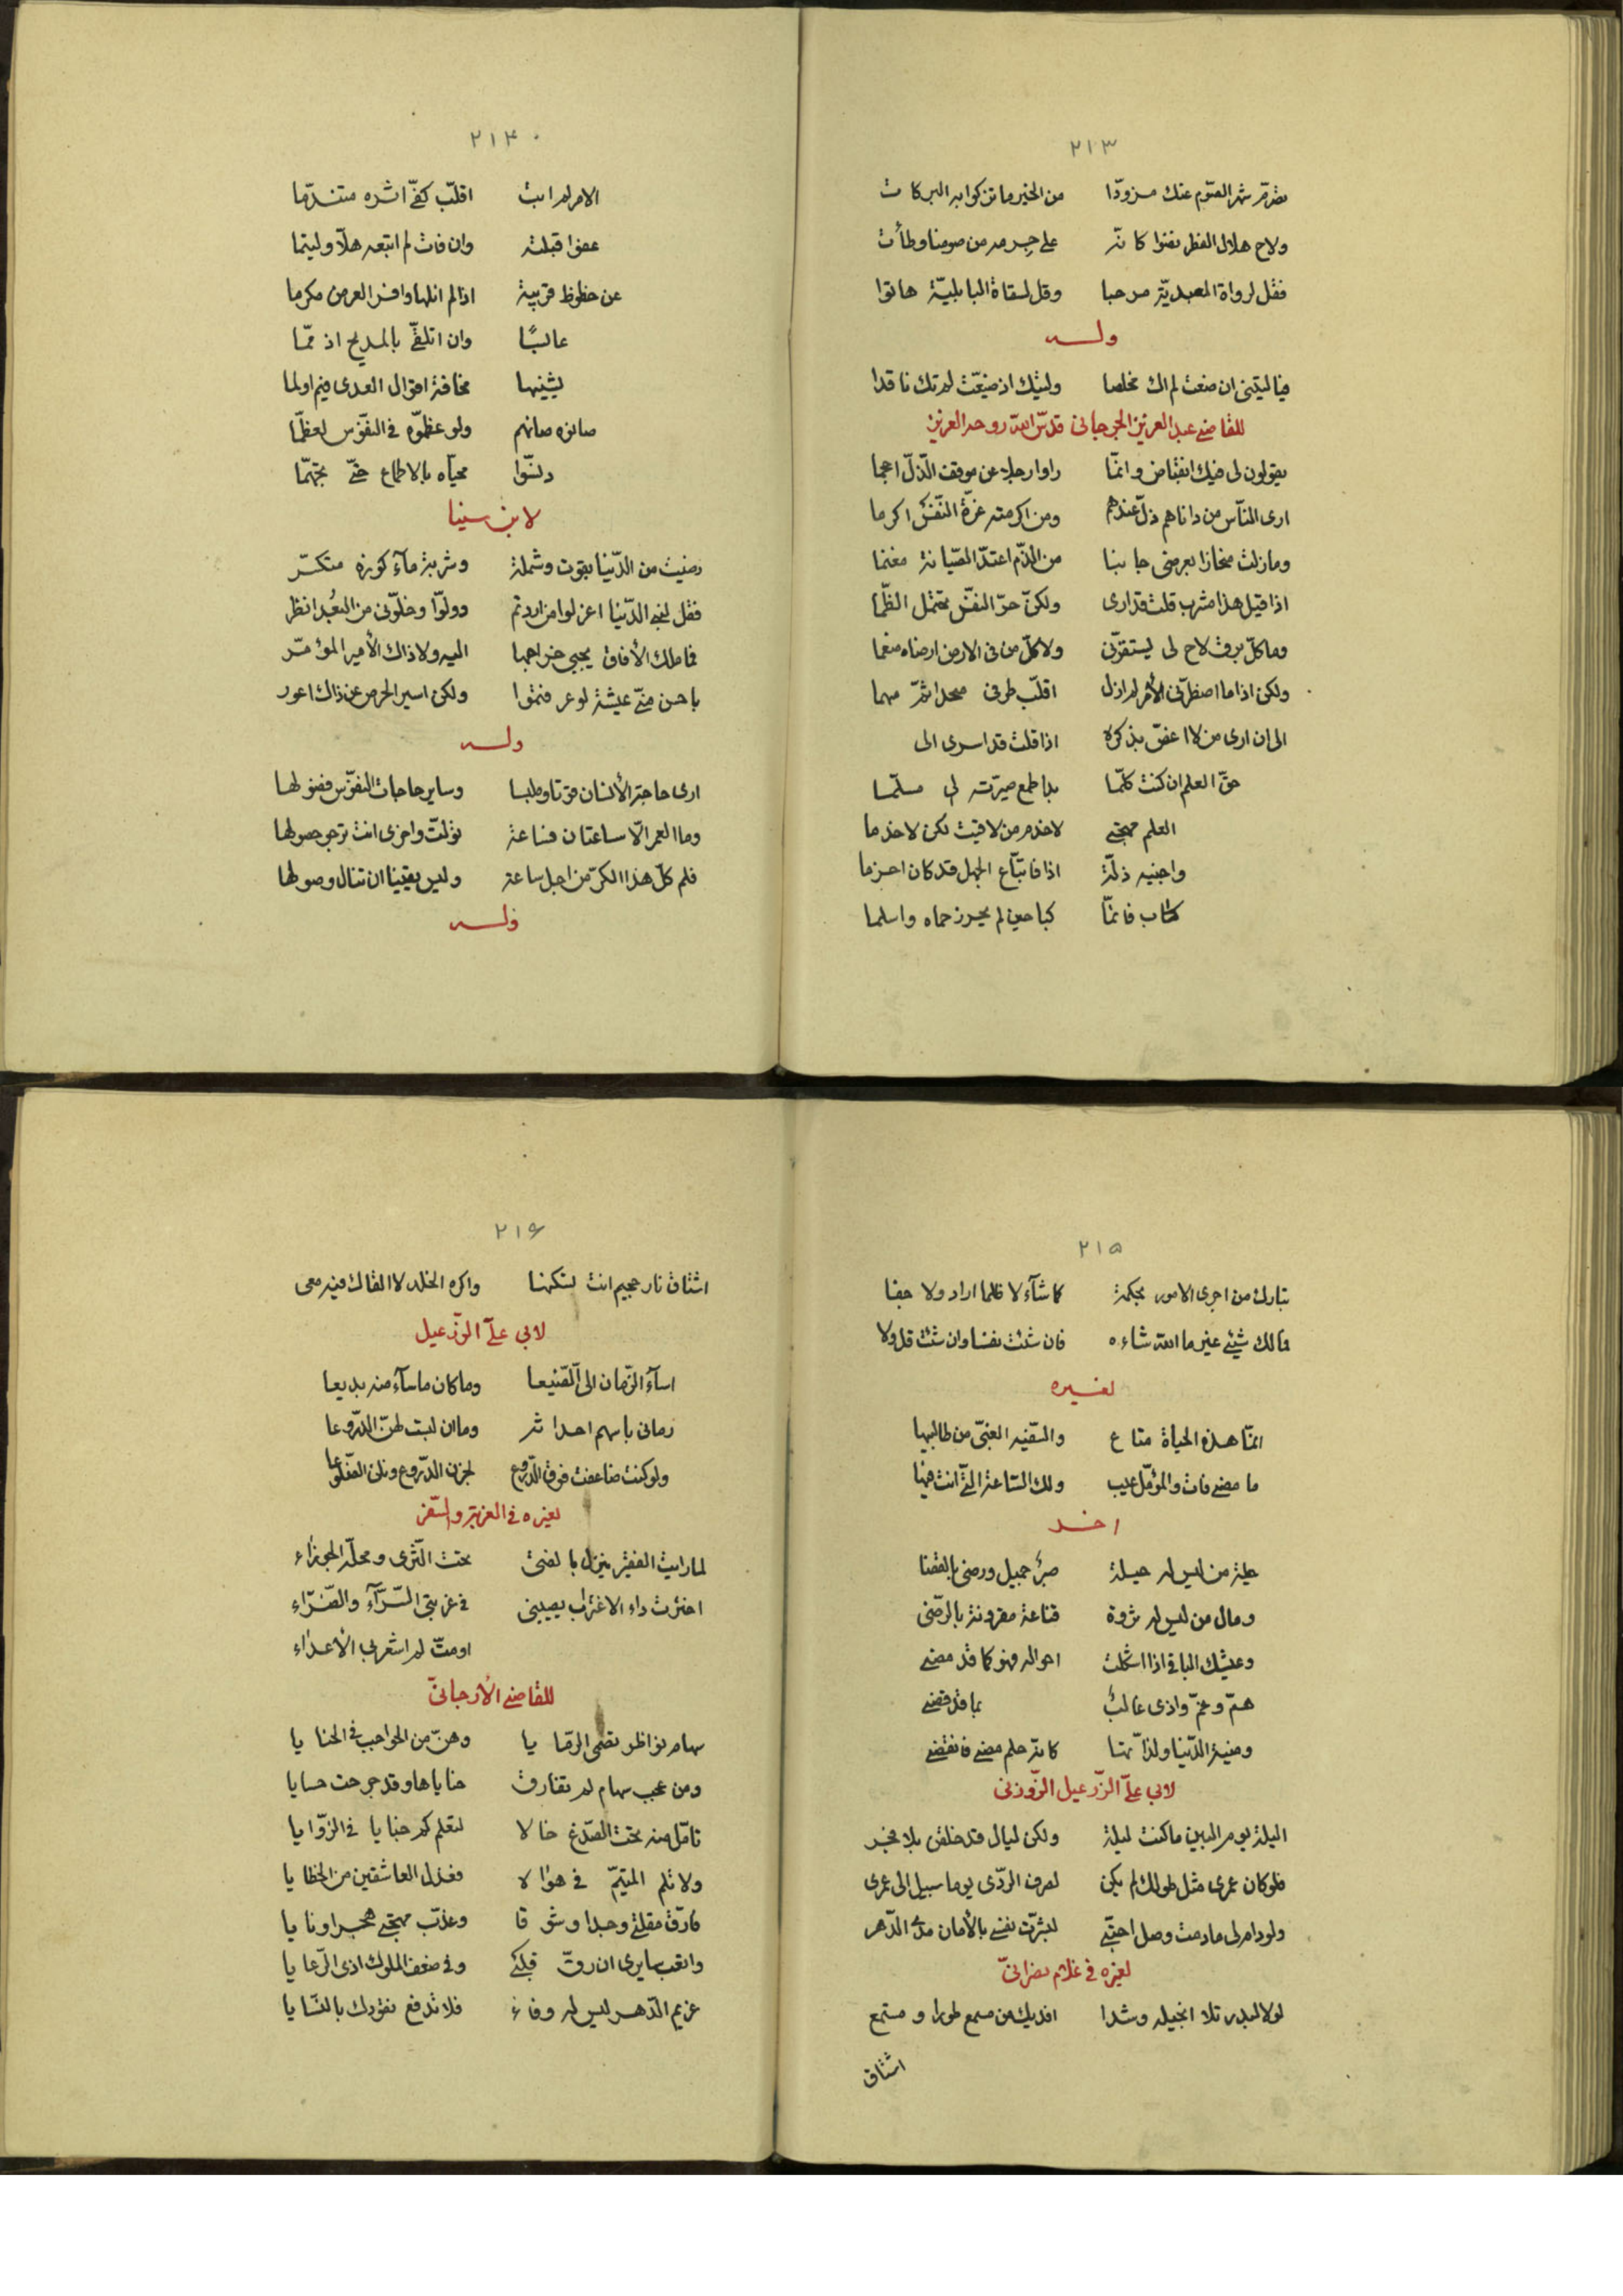 ٢١٣
تصرّم شهر الصّوم عنك مزوّدا من الخير ما تزكوا به البركات
ولاح هلال الفطر نضوا كانّه على جرمه من صومنا وطأت
فقل لرواة المعبديّة مرحبا وقل لسقاة البابليّة هاتوا
وله
فيا ليتنى ان ضعت لم اك مخلصا وليتك اذ ضيّعت لم تك ناقدا
للقاضى عبد العزيز الجرجانى قدّس الله روحه العزيز
يقولون لى فيك انقباض وانمّا راوا رجلا عن موقف الذّلّ احجما
ارى النّاس من داناهم ذلّ عندهم ومن اكرمته عزّة النّفس اكرما
وما زلت منحازا بعرضى جانبا من الذّم اعتدّ الصّيانة مغنما
اذا قيل هذا مشرب قلت قد ارى ولكنّ حرّ النفس يحتمل الظّما
وما كلّ برق لاح لى يستفزّنى ولا كلّ من فى الارض ارضاه منعما
ولكن اذا ما اضطرّنى الأمر لم ازل اقلّب طرفى منجدا ثمّ متهما
الى ان ارى من لا اغصّ بذكره اذا قلت قد اسرى الى
حقّ العلم ان كنت كلمّا بدا طمع صيّرته لى سلّما
العلم مهجتى لاخدم من لاقيت لكن لاخدما
واجنيه ذلّة اذا فاتبّاع الجهل قد كان احزما
كتاب فانمّا كبا حين لم يحرز حماه واسلما
٢١۴
الامر لم ابت اقلّب كفّى اثره متندّما
عفوا قبلته وان فات لم اتبعه هلّا وليتما
عن حظوظ قريبة اذا لم انلها وافر العرض مكرما
عابسًا وان اتلقّى بالمديح اذ ممّا
يشينها مخافة اقوال العدى فيم اولما
صانوه صانهم ولو عظّموه فى النفوس لعظّما
دنسّوا محيّاه بالاطماع حتّى تجهّما
لابن سينا
رضيت من الدّنيا بقوت وشملة وشربة مآء كوزه متكسّر
فقل لبنى الدّنيا اعزلوا من اردتم وولوّا وخلّونى من البُعد انظر
فما ملك الأفاق يجبى خراجها اليه ولا ذاك الأمير المؤمّر
باحسن منّى عيشة لو عرفتموا ولكن اسير الحرص عن ذاك اعور
وله
ارى حاجة الأنسان قوتا وملبسا وساير حاجات النفوس فضولها
وما العمر الّا ساعتان فساعة تولّت واخرى انت ترجو حصولها
فلم كلّ هذا الكرّ من اجل ساعة وليس يقينا ان تنال وصولها
وله
٢١۵
تبارك من اجرى الامور بحكمة كما شآء لا ظلما اراد ولا هضا
فما لك شيئ غير ما الله شاءه فان شئت نفسا وان شئت قل ولا
لغيره
انمّا هذه الحياة متاع والسّفيه الغبىّ من طالبيها
ما مضى فات والمؤمّل غيب ولك السّاعة الّتى انت فيها
اخر
حيلة من ليس له حيلة صبرٌ جميل ورضى بالقضا
ومال من ليس له ثروة قناعة مقرونة بالرّضى
وعيشك الباقى اذا اشكلت احواله فهو كما قد مضى
همّ وغمّ واذى غالبٌ بما قد قضى
ومنية الدّنيا ولذّاتها كانّه حلم مضى فانقضى
لابى علىّ الزّرعيل الزّوزنى
اليلة يوم البين ما كنت ليلة ولكن ليال قد خلقن بلا فجر
فلو كان عمرى مثل طولك لم يكن لصرف الرّدى يوما سبيل الى عمرى
ولو دام لى ما دمت وصل احبّتى لبشّرت نفسى بالأمان مدى الدّهر
لغيره فى غلام نصرانىّ
لو لا لبدر تلا انجيله وشدا افديك من مسمع طورا ومستمع
اشتاق
٢١۶
اشتاق نار جحيم انت تسكنها واكره الخلد لا القاك فيه معى
لابى علىّ الوزّعيل
اسآءَ الزّمان الىّ الصّنيعا وما كان ما سآء منه بديعا
رمانى باسهم احداثه وما ان لبست لهنّ الدّروعا
ولو كنت ضاعفت فوق الدّروع لجزن الدّروع ونلن الضّلوعا
لغيره فى الغربة والسّفر
لما رايت الفقر ينزل بالفتى تحت الثّرى ومحلّه الجوزاء
اخترت داء الاغتراب يصيبنى فى غربتى السّرّآء والضّرّاء
او متّ لم اشعر بى الأعداء
للقاضى الأرجانىّ
سهام نواظر تصمى الرمّايا وهنّ من الحواجب فى الحنايا
ومن عجب سهام لم تفارق حناياها وقد جرحت حسايا
تامّل منه تحت الصّدغ خالا لتعلم كم خبايا فى الزّوايا
ولا تلم المتيّم فى هواه فعذل العاشقين من الخطايا
فارّق مقلتى وجدا وشوقا وعذّب مهجتى هجرا ونايا
واتعب سايرى ان رقّ قلبى وفى ضعف الملوك اذى الرّعايا
غريم الدّهر ليس له وفاء فلا تدفع نقودك بالنّسايا